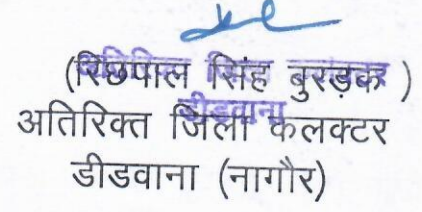 (रिछपाल सिंह बुरड़क )
अतिरिक्त जिला कलक्टर
डीडवाना (नागौर)